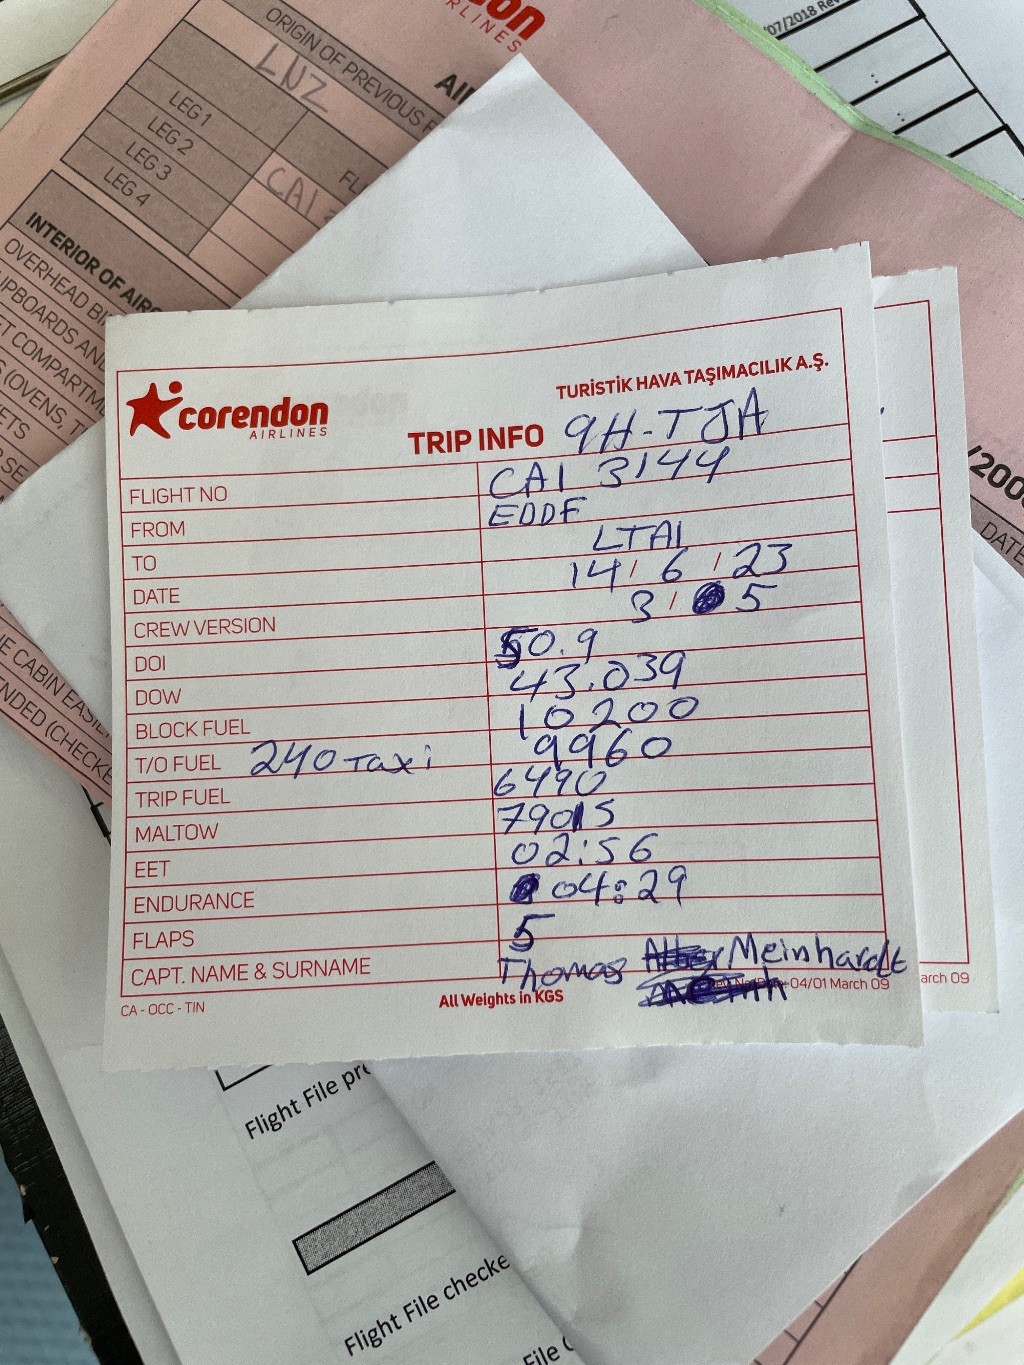 don
RLINES
ORIGIN OF PREVIOUS
LNZ
AI
LEG 1
LEG 2
LEG 3
LEG 4
FL
CAI
/07/2018 Rev
INTERIOR OF AIRC
OVERHEAD BI
UPBOARDS AN
ET COMPARTM
S (OVENS, T
ETS
R SE
corendon
AIRLINES
TURİSTİK HAVA TAŞIMACILIK A.Ş.
TRIP INFO 9H-TJA
FLIGHT NO CAI 3144
FROM EDDF
TO LTAI
DATE 14/6/23
CREW VERSION 3/5
DOI 50.9
DOW 43.039
BLOCK FUEL 10200
T/O FUEL 240 Taxi 9960
TRIP FUEL 6490
MALTOW 79015
EET 02:56
ENDURANCE 04:29
FLAPS 5
CAPT. NAME & SURNAME Thomas Meinhardt
CA - OCC - TIN All Weights in KGS 04/01 March 09
arch 09
/200
DATE
HE CABIN EASI
NDED (CHECKE
Flight File pre
Flight File checke
File